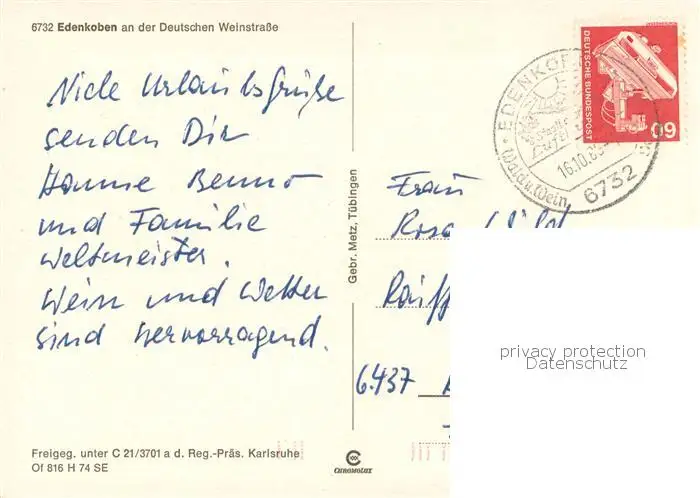 6732 Edenkoben an der Deutschen Weinstraße
Viele Urlaubsgrüße
senden Dir
Hanne Benno
und Familie
Weltmeister.
Wein und Wetter
sind hervorragend.
Freigeg. unter C 21/3701 a d. Reg.-Präs. Karlsruhe
Of 816 H 74 SE
Gebr. Metz, Tübingen
CHROMOLUX
DEUTSCHE BUNDESPOST
60
EDENKOB
16.10.8
Wald u. Wein
6732
Frau
Rosa
Raiff
6437
privacy protection
Datenschutz